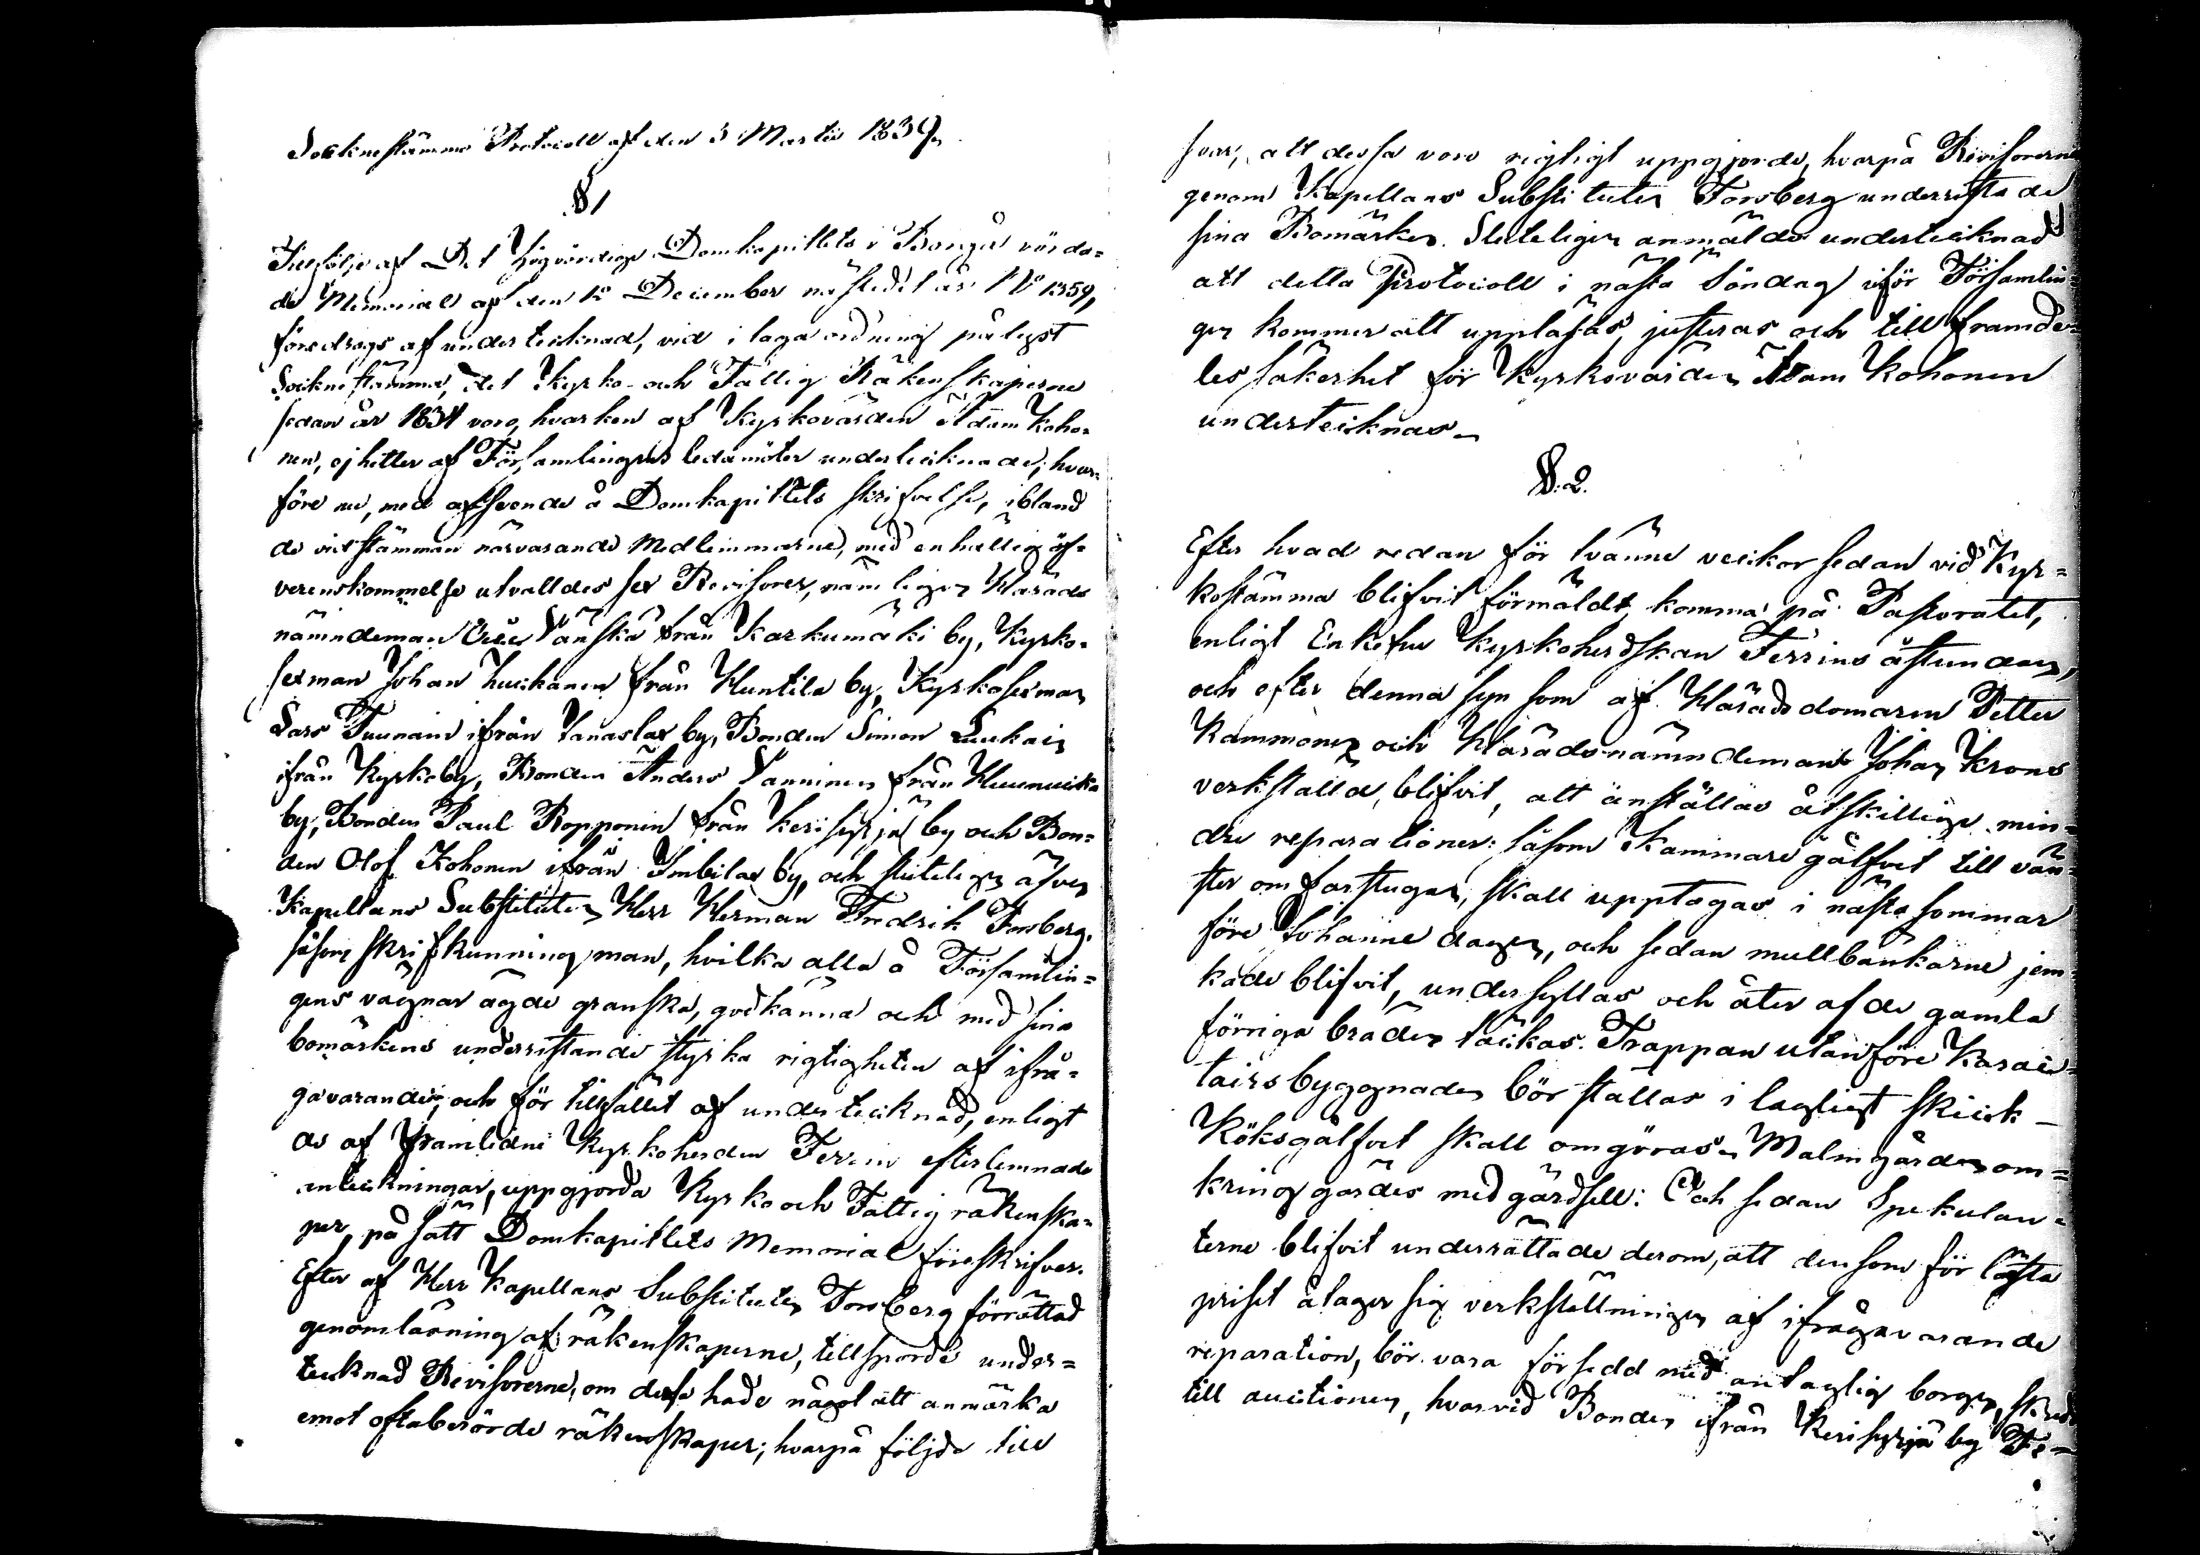 Socknestämmo Protocoll af den 3 Martii 1839.
§ 1
Till följe af Det Högvördige Domkapitlets i Borgå vörda=
de Memorial af den 12 December nästledit år No 1359,
föredrogs af undertecknad, vid i laga ordning pålyst
Sockne stämma, det Kyrko- och Fattig Räkenskaperne
sedan år 1834 voro, hvarken af Kyrkovärden Adam Koho=
nen, ej heller af Församlingens ledamöter undertecknade; hvar=
före nu, med afseende å Domkapitlets skrifvelse, ibland
de vid stämman närvarande Medlemmarne, med enhällig öf=
verenskommelse utvalldes sex Revisorer, nämligen Härads
nämndeman Vänskä från Karkumäki by, Kyrko=
sexman Johan Huikanen från Huntila by, Kyrkosexman
Lars Tuunain ifrån Vanaslax by, Bonden Simon Luukain
ifrån Kyrkoby, Bonden Anders Vanninen från
by, Bonden Paul Ropponen från Kerisyrjä by och Bon=
den Olof Kohonen ifrån Imbilax by, och sluteligen äfven
Kapellans Substituten Herr Herman Fredrik Forsberg,
såsom skrifkunnig man, hvilka alla å Församlin=
gens vägnar ägde granska, godkänna och med sina
bomärkens underristande styrka rigtigheten af ifrå=
gavarande, och för tillfället af undertecknad, enligt
de af framlidne Kyrkoherden Ferrin efterlemnade
anteckningar, uppgjorda Kyrko och Fattig räkenska=
per, på sätt Domkapitlets Memorial föreskrifver.
Efter af Herr Kapellans Substituten Forsberg förrättad
genomläsning af räkenskaperne, tillsporde under=
tecknad Revisorerne, om desse hade något att anmärka
emot oftaberörde räkenskaper; hvarpå följde till
svar, att dessa voro rigtigt uppgjorde, hvarpå Revisorerne
genom Kapellans Substituten Forsberg underristade
sina Bomärken. Sluteligen anmälde undertecknad
att detta Protocoll i nästa Söndag inför Församlin=
gen kommer att uppläsas, justeras och till framde=
les säkerhet för Kyrkovärden Adam Kohonen
undertecknas.
§. 2.
Efter hvad redan för tvänne veckor sedan vid Kyr=
kostämma blifvit förmäldt, komma på Pastoratet,
enligt Enkefru Kyrkoherdskan Ferrins åstundan,
och efter denna syn som af Häradsdomaren Petter
Kammonen och Häradsnämndeman Johan Krons
verkställd, blifvit, att anställas åtskillige min=
dre reparationer: såsom Kammare gålfvet till vän=
ster om farstugan, skall upptagas i nästa sommar
före Johanne dagen, och sedan mullbänkarne jem=
kade blifvit, undersyllas och åter af de gamla
förriga bräden täckas. Trappan utanföre Karac=
tairsbyggnaden bör ställas i lagligt skick —
Köksgålfvet skall omgöras. Malmgården om=
kring gärdes med gärdsell: Och sedan Spekulan=
terne blifvit underrättade derom, att den som för lägsta
priset åtager sig verkställningen af ifrågavarande
reparation, bör vara försedd med antaglig borgen, skreds
till auctionen, hvarvid Bonden ifrån Kerisyrjä by